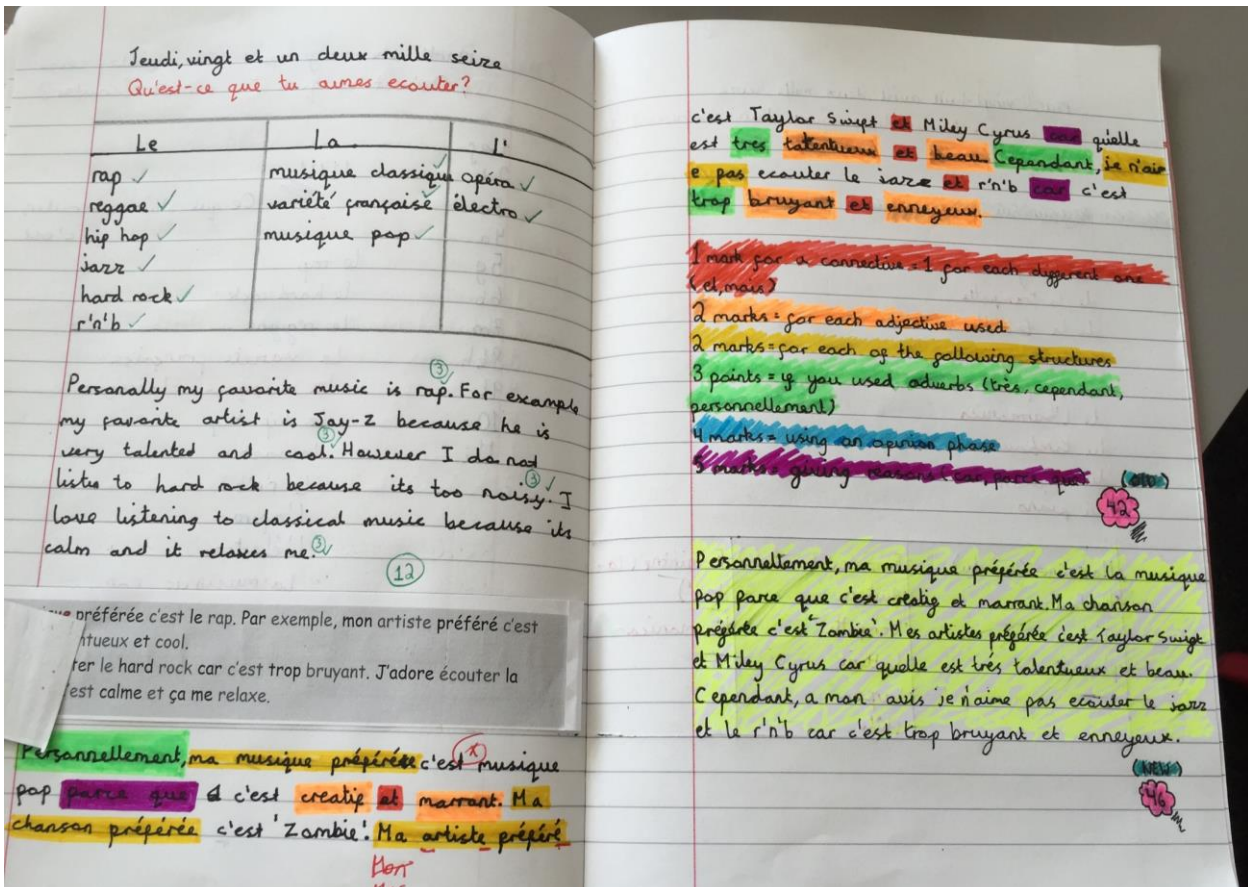 Jeudi, vingt et un deux mille seize
Qu'est-ce que tu aimes ecouter?
Le La L'
rap ✓ musique classique ✓ opéra ✓
reggae ✓ variété française ✓ électro ✓
hip hop ✓ musique pop ✓
jazz ✓
hard rock ✓
r'n'b ✓
Personally my favorite music is rap. ③ ✓ For example
my favorite artist is Jay-Z because he is
very talented and cool. ③ ✓ However I do not
listen to hard rock because its too noisy. ③ ✓ I
love listening to classical music because its
calm and it relaxes me. ③ ✓
12
préférée c'est le rap. Par exemple, mon artiste préféré c'est
ntueux et cool.
ter le hard rock car c'est trop bruyant. J'adore écouter la
est calme et ça me relaxe.
Personnellement, ma musique préférée c'est musique
pop parce que c'est creatif et marrant. Ma
chanson préférée c'est 'Zombie'. Ma artiste préféré
Mon
c'est Taylor Swift et Miley Cyrus car qu'elle
est tres talentueux et beau. Cependant, je n'aim
e pas ecouter le jazz et r'n'b car c'est
trop bruyant et enneyeux.
1 mark for a connective = 1 for each different one
(et, mais)
2 marks = for each adjective used
2 marks = for each of the following structures
3 points = if you used adverbs (très, cependant,
personnellement)
4 marks = using an opinion phase
5 marks = giving reasons (car, parce que)
(OLD)
42
Personnellement, ma musique préférée c'est la musique
pop parce que c'est creatif et marrant. Ma chanson
préférée c'est 'Zombie'. Mes artistes préférée c'est Taylor Swift
et Miley Cyrus car quelle est trés talentueux et beau.
Cependant, a mon avis je n'aime pas ecouter le jazz
et le r'n'b car c'est trop bruyant et enneyeux.
(NEW)
46